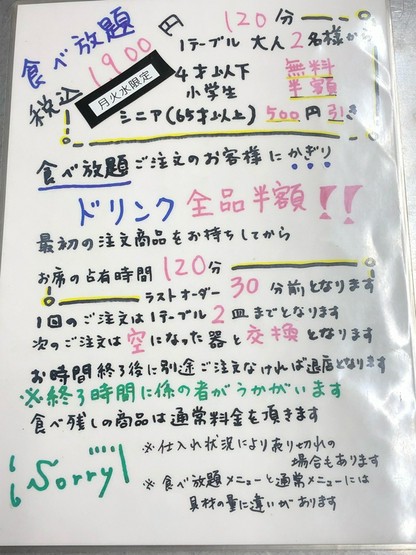 食べ放題 120分
税込 1900円 1テーブル 大人2名様から
月火水限定
4才以下 無料
小学生 半額
シニア(65才以上) 500円引き
食べ放題ご注文のお客様にかぎり
ドリンク 全品半額!!
最初の注文商品をお持ちしてから
お席の占有時間 120分
ラストオーダー 30分前となります
1回のご注文は1テーブル2皿までとなります
次のご注文は空になった器と交換となります
お時間終了後に別途ご注文なければ退店となります
※終了時間に係の者がうかがいます
食べ残しの商品は通常料金を頂きます
Sorry!
※仕入れ状況により売り切れの
場合もあります
※食べ放題メニューと通常メニューには
具材の量に違いがあります